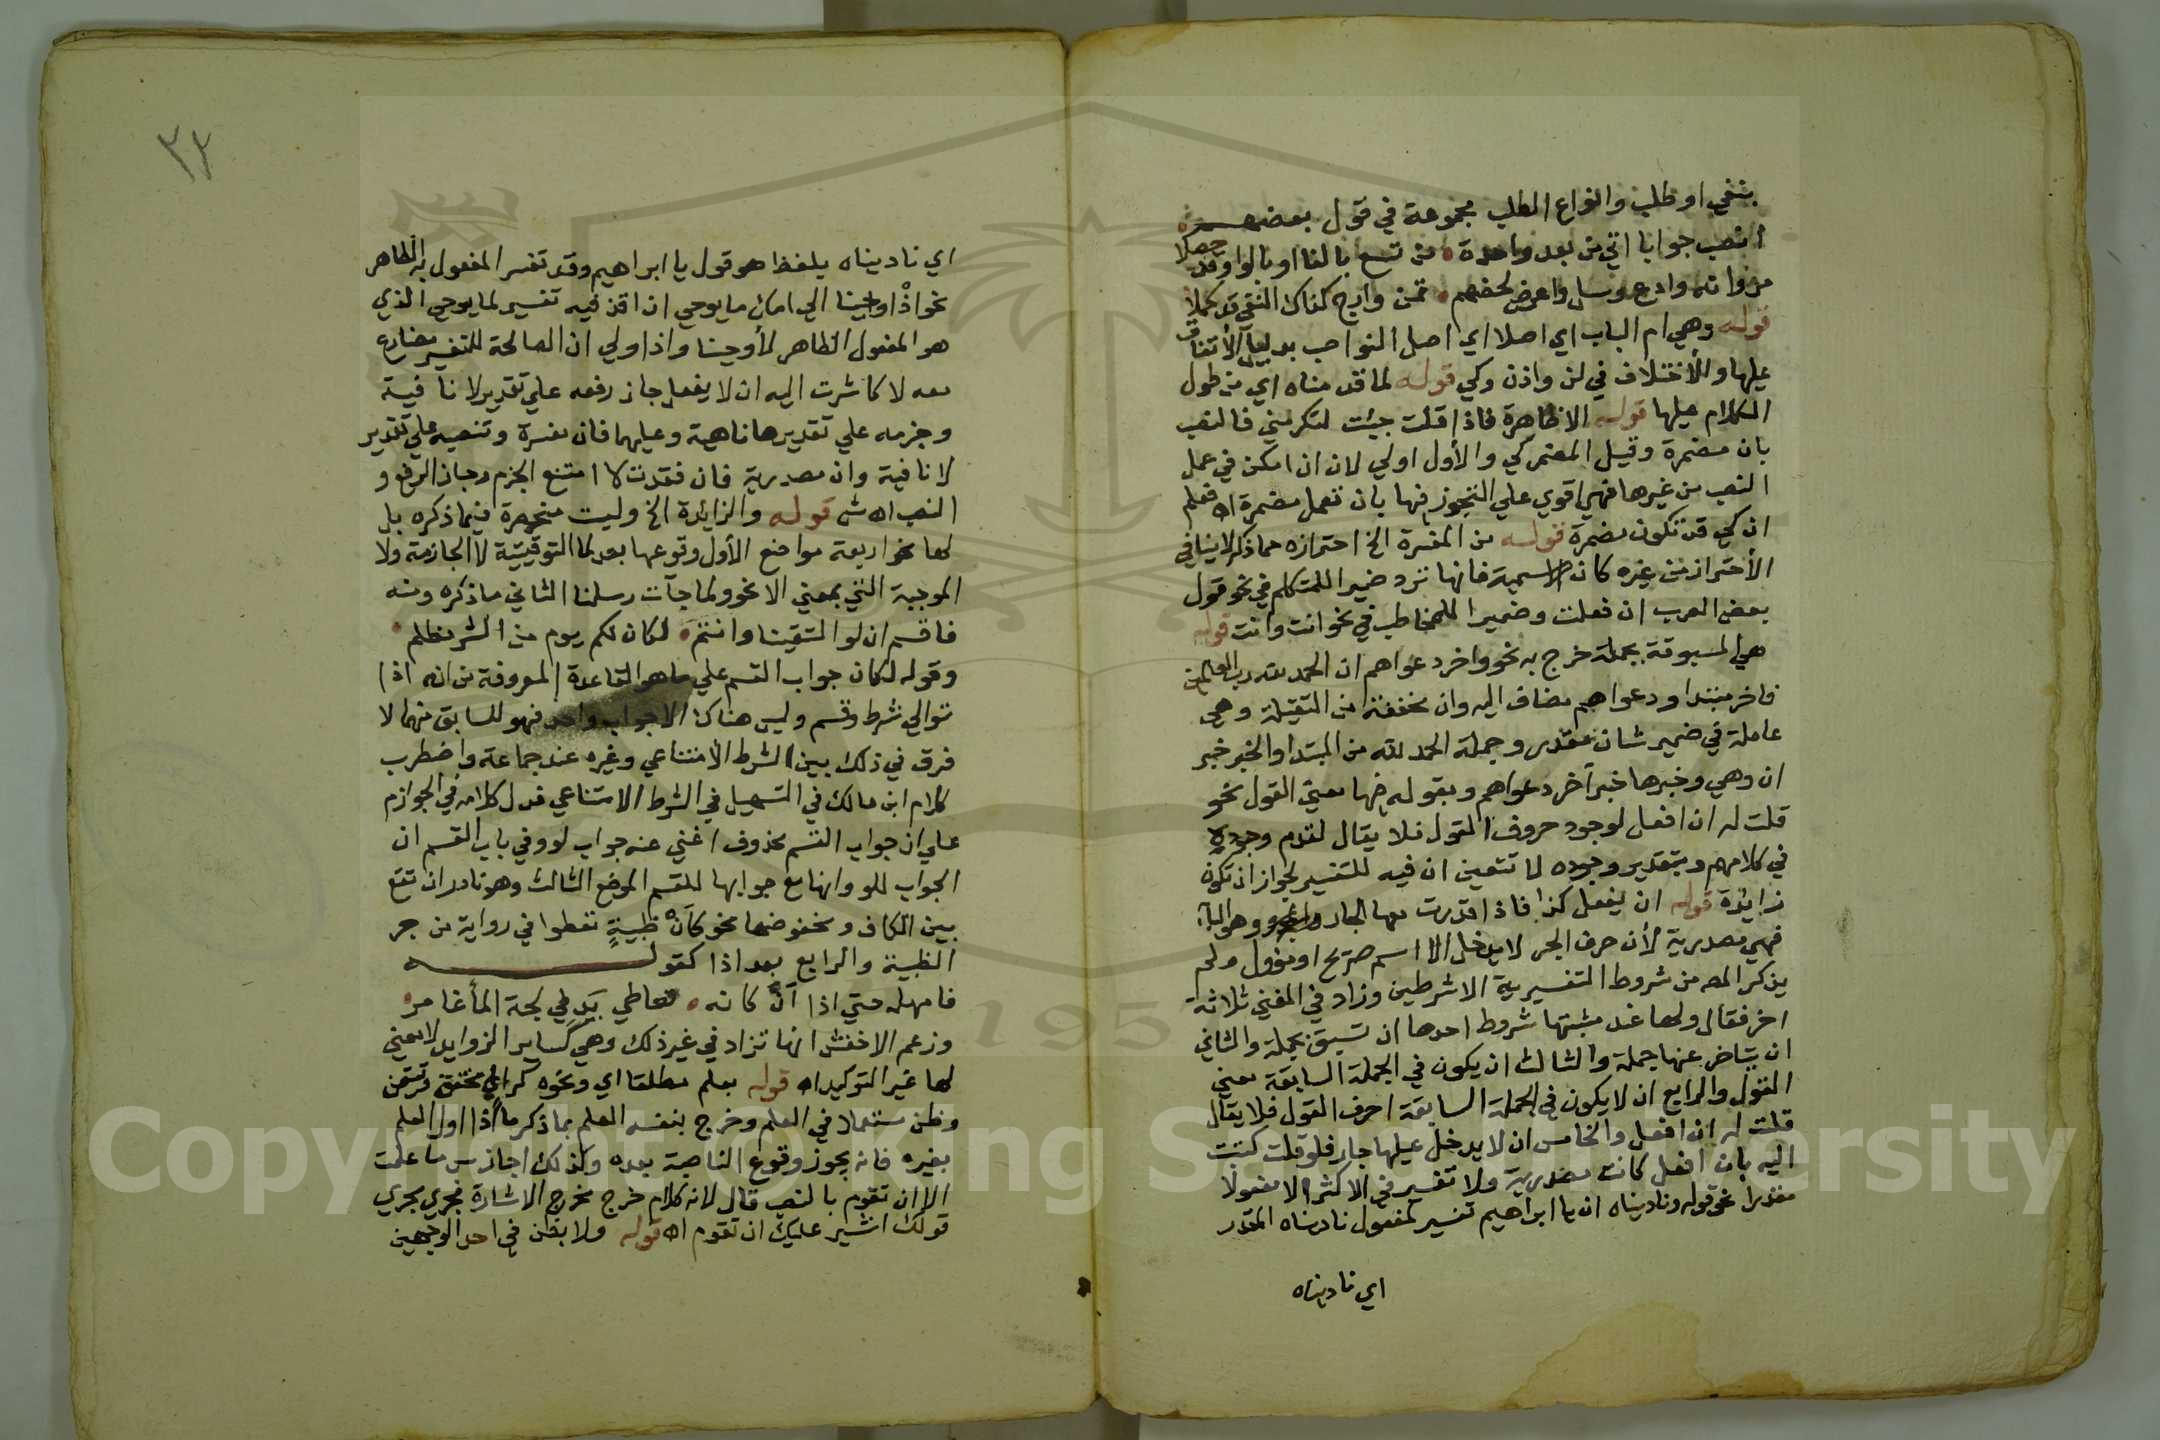 بنفي او طلب وانواع الطلب مجموعة في قول بعضهم
انصب جوابا اتى من بعد واحدة من تسع بالفا او بالواو قد حصلا
مر وانه وادع وسل واعرض لحضهم تمن وارج كذاك النفي قد كملا
قوله وهي ام الباب اي اصلا اي اصل النواصب بدليل الاتفاق
عليها والاختلاف في لن واذن وكي قوله لما قدمناه اي من طول
الكلام عليها قوله الا ظاهرة فاذا قلت جيئت لتكرمني فالنصب
بان مضمرة وقيل المضمر كي والأول اولي لان ان امكن في عمل
النصب من غيرها فهي اقوي علي التجوز فيها بان تعمل مضمرة اه فعلم
ان كي قد تكون مضمرة قوله من المفسرة الخ احترازه مما ذكر لا ينافي
الأحتراز من غيره كان الاسمية فانها ترد ضميرا للمتكلم في نحو قول
بعض العرب ان فعلت وضميرا للمخاطب في نحو انت وانت قوله
هي المسبوقة بجملة خرج به نحو واخر دعواهم ان الحمد لله رب العالمين
فاخر مبتدا ودعواهم مضاف اليه وان مخففة من الثقيلة وهي
عاملة في ضمير شان مقدر وجملة الحمد لله من المبتدا والخبر خبر
ان وهي وخبرها خبر آخر دعواهم وبقوله فيها معني القول نحو
قلت له ان افعل لوجود حروف القول فلا يقال لعدم وجوده
في كلامهم وبتقدير وجوده لا تتعين ان فيه للتفسير لجواز ان تكون
زايدة قوله ان يفعل كذا فاذا قدرت معها الجار وهو البآء
فهي مصدرية لأن حرف الجر لا يدخل الا اسم صريح او مؤول ولم
يذكر المصـ من شروط التفسيرية الا شرطين وزاد في المغني ثلاثة
اخر فقال ولها عند مثبتها شروط احدها ان تسبق بجملة والثاني
ان يتأخر عنها جملة والثالث ان يكون في الجملة السابقة معني
القول والرابع ان لا يكون في الجملة السابقة احرف القول فلا يقال
قلت له ان افعل والخامس ان لا يدخل عليها جار فلو قلت كتبت
اليه بان افعل كانت مصدرية ولا تفسير في الاكثر الا مفعولا
مقدرا نحو قوله وناديناه ان يا ابراهيم تفسير لمفعول ناديناه المقدر
اي ناديناه
٣٢
اي ناديناه بلفظ هو قول يا ابراهيم وقد تفسر المفعول به الظاهر
نحو اذْ اوحينا الي امك ما يوحي ان اقذفيه تفسير لما يوحي الذي
هو المفعول الظاهر لأوحينا واذا ولي ان الصالحة للتفسير مضارع
معه لا كاشرت اليه ان لا يفعل جاز رفعه علي تقدير لا نافية
وجزمه علي تقديرها ناهية وعليهما فان مفسرة ونصبه علي تقدير
لا نافية وان مصدرية فان فقدت لا امتنع الجزم وجاز الرفع و
النصب اه ش قوله والزائدة الخ وليت منحصرة فيما ذكره بل
لها نحو اربعة مواضع الأول وقوعها بعد لما التوقيتية لا الجازمة ولا
الموجبة التي بمعني الا نحو ولما جآت رسلنا الثاني ما ذكره ومنه
فاقسم ان لو التقينا وانتم لكان لكم يوم من الشر مظلم
وقوله لكان جواب القسم علي ما هو القاعدة المعروفة من انه اذا
توالي شرط وقسم وليس هناك الا جواب واحد فهو للسابق منهما لا
فرق في ذلك بين الشرط الأمتناعي وغيره عند جماعة واضطرب
كلام ابن مالك في التسهيل في الشرط الامتناعي فدل كلامه في الجوازم
علي ان جواب القسم محذوف اغني عنه جواب لو وفي باب القسم ان
الجواب للو وانها مع جوابها للقسم الموضع الثالث وهو نادر ان تقع
بين الكاف ومخفوضها نحو كأنْ ظبيةٍ تعطوا في رواية من جر
الظبية والرابع بعد اذا كقوله
فامهله حتي اذا أن كانه معاطي يدٍ في لجة المأ غامر
وزعم الاخفش انها تزاد في غير ذلك وهي كساير الزوايد لا معني
لها غير التوكيد اه قوله بعلم مطلقا اي ونحوه كراي تحقق وتيقن
وظن مستعملا في العلم وخرج بنفسه العلم بما ذكر ما اذا اول العلم
بغيره فانه يجوز وقوع الناصبة بعده وكذلك اجاز س ما علمت
الا ان تقوم بالنصب قال لانه كلام خرج مخرج الاشارة فجري مجري
قولك اشير عليك ان تقوم اه قوله ولا بظن في احد الوجهين
Copyright © King Saud University
195